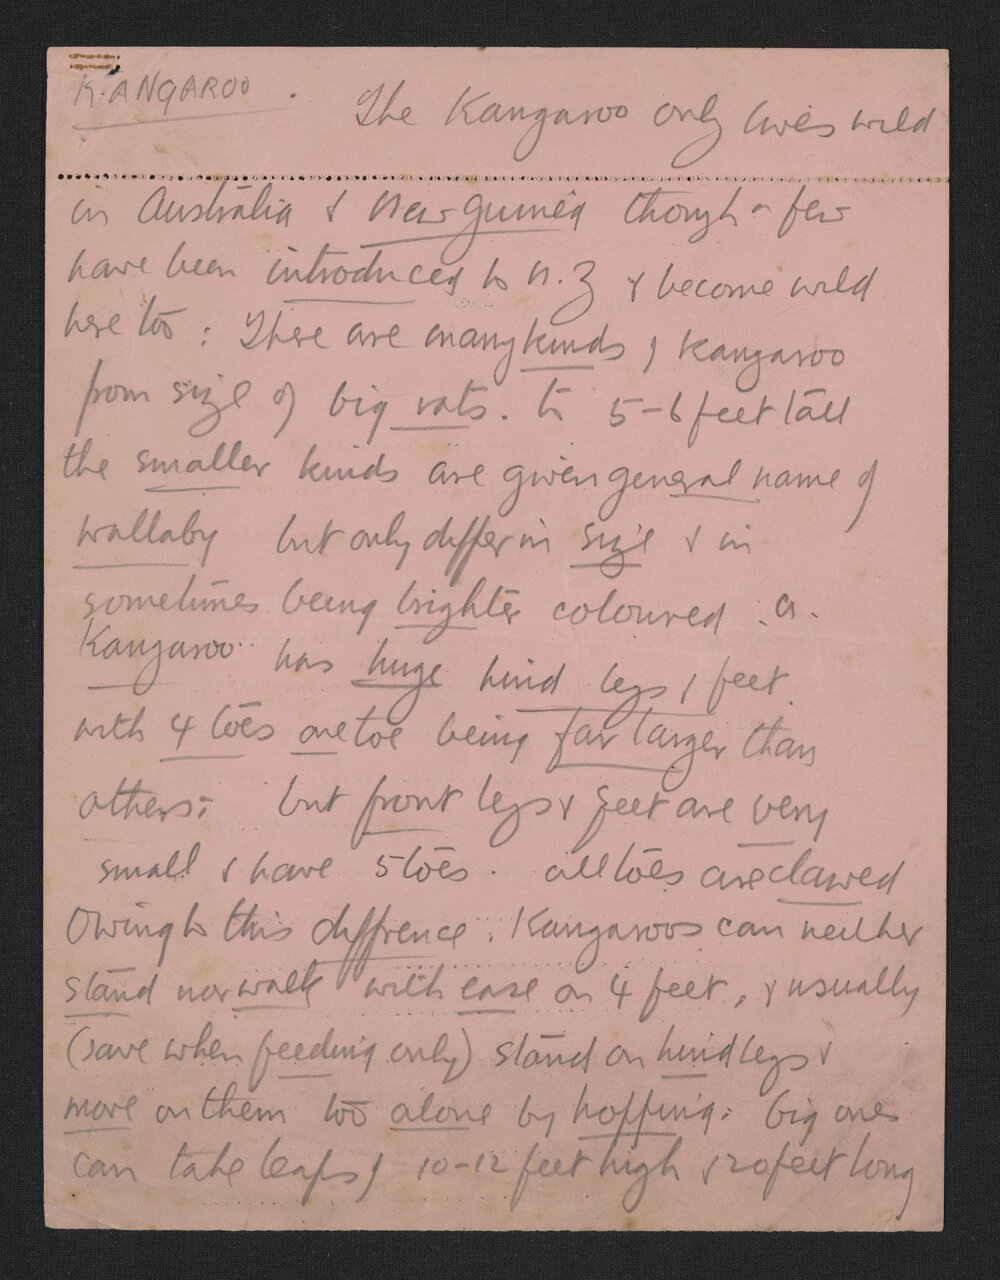 KANGAROO. The Kangaroo only lives wild
in Australia & New Guinea though a few
have been introduced to N.Z & become wild
here too: There are many kinds of kangaroo
from size of big rats. to 5-6 feet tall
the smaller kinds are given general name of
wallaby but only differ in size & in
sometimes being brighter coloured. A.
Kangaroo has huge hind legs & feet.
with 4 toes one toe being far larger than
others; but front legs & feet are very
small & have 5 toes. all toes are clawed
Owing to this diffrence. Kangaroos can neither
stand nor walk with ease on 4 feet, & usually
(save when feeding only) stand on hind legs &
move on them too alone by hopping. big ones
can take leaps of 10-12 feet high & 20 feet long